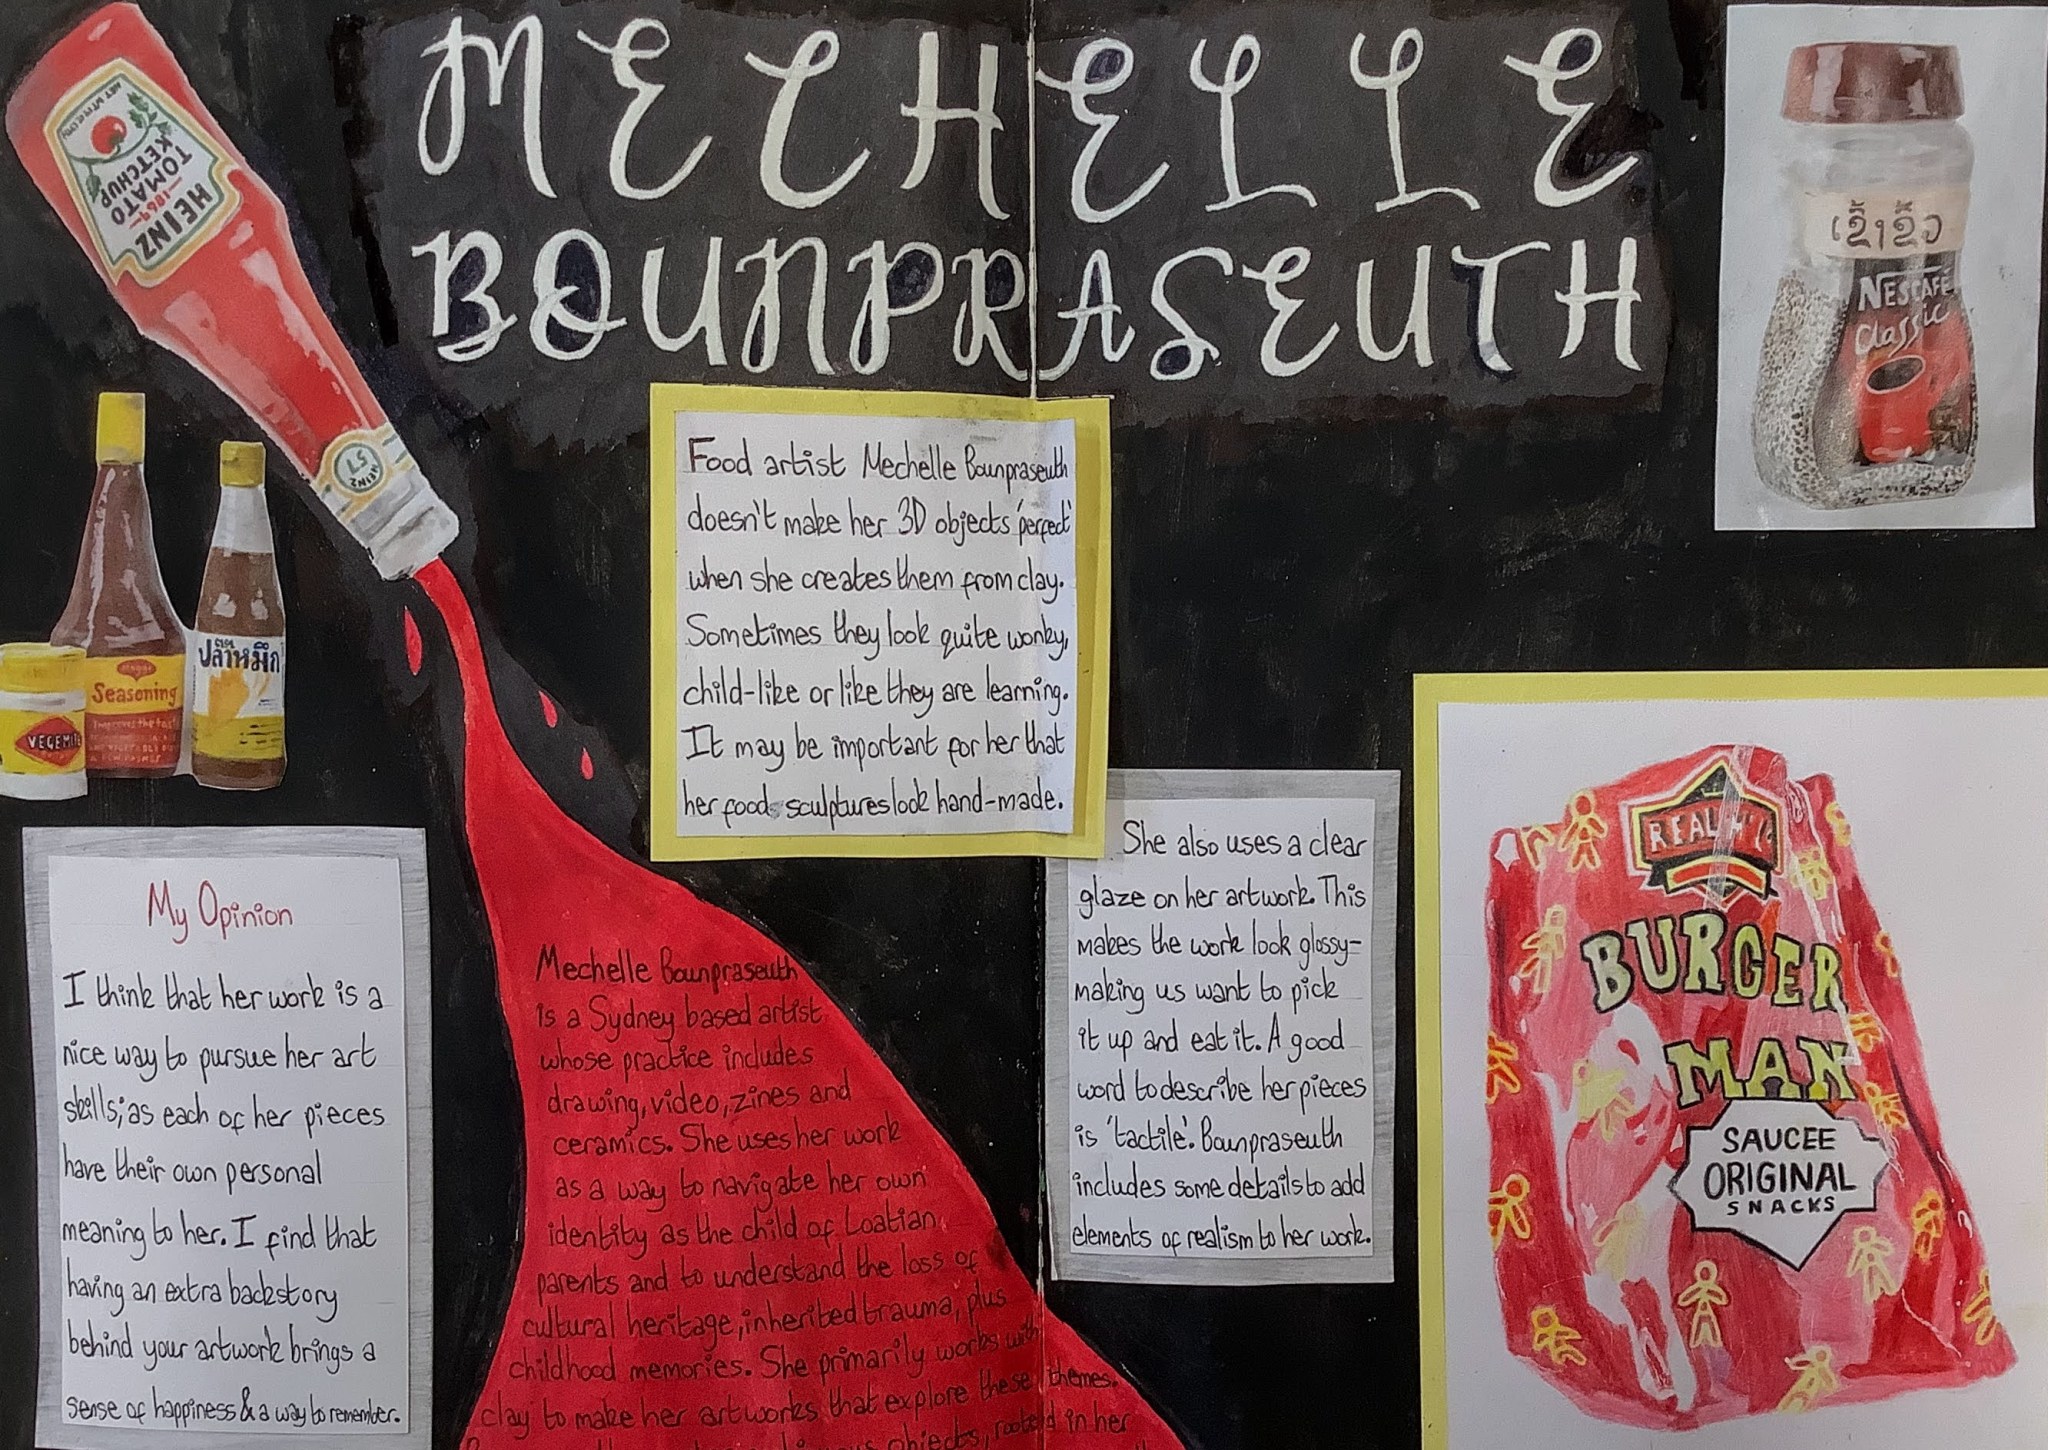 MECHELLE
BOUNPRASEUTH
HEINZ
1869
TOMATO
KETCHUP
HEINZ
57
Seasoning
VEGEMITE
ปลาหมึก
ເຂົ້າຂົ້ວ
NESCAFÉ
Classic
Food artist Mechelle Bounpraseuth
doesn't make her 3D objects 'perfect'
when she creates them from clay.
Sometimes they look quite wonky,
child-like or like they are learning.
It may be important for her that
her food sculptures look hand-made.
She also uses a clear
glaze on her artwork. This
makes the work look glossy-
making us want to pick
it up and eat it. A good
word to describe her pieces
is 'tactile'. Bounpraseuth
includes some details to add
elements of realism to her work.
My Opinion
I think that her work is a
nice way to pursue her art
skills; as each of her pieces
have their own personal
meaning to her. I find that
having an extra backstory
behind your artwork brings a
sense of happiness & a way to remember.
Mechelle Bounpraseuth
is a Sydney based artist
whose practice includes
drawing, video, zines and
ceramics. She uses her work
as a way to navigate her own
identity as the child of Loatian
parents and to understand the loss of
cultural heritage, inherited trauma, plus
childhood memories. She primarily works with
clay to make her artworks that explore these themes.
objects, rooted in her
BURGER
MAN
SAUCEE
ORIGINAL
SNACKS